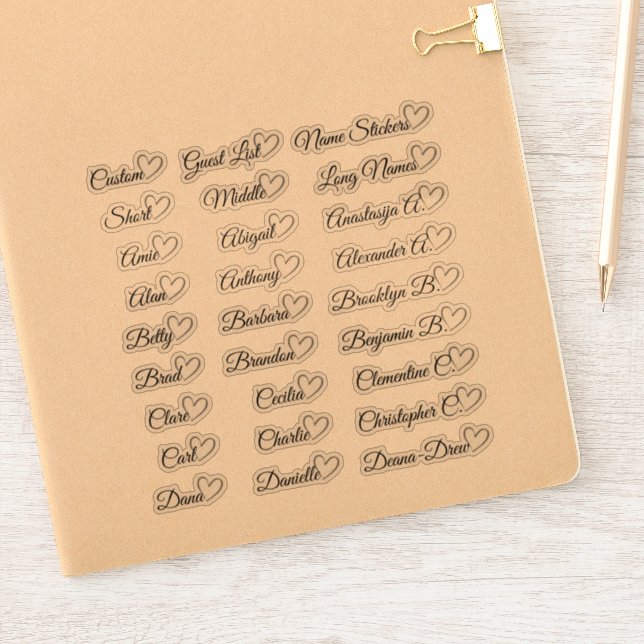 Custom Guest List Name Stickers
Short Middle Long Names
Amie Abigail Anastasija A.
Alan Anthony Alexander A.
Betty Barbara Brooklyn B.
Brad Brandon Benjamin B.
Clare Cecilia Clementine C.
Carl Charlie Christopher C.
Dana Danielle Deana-Drew